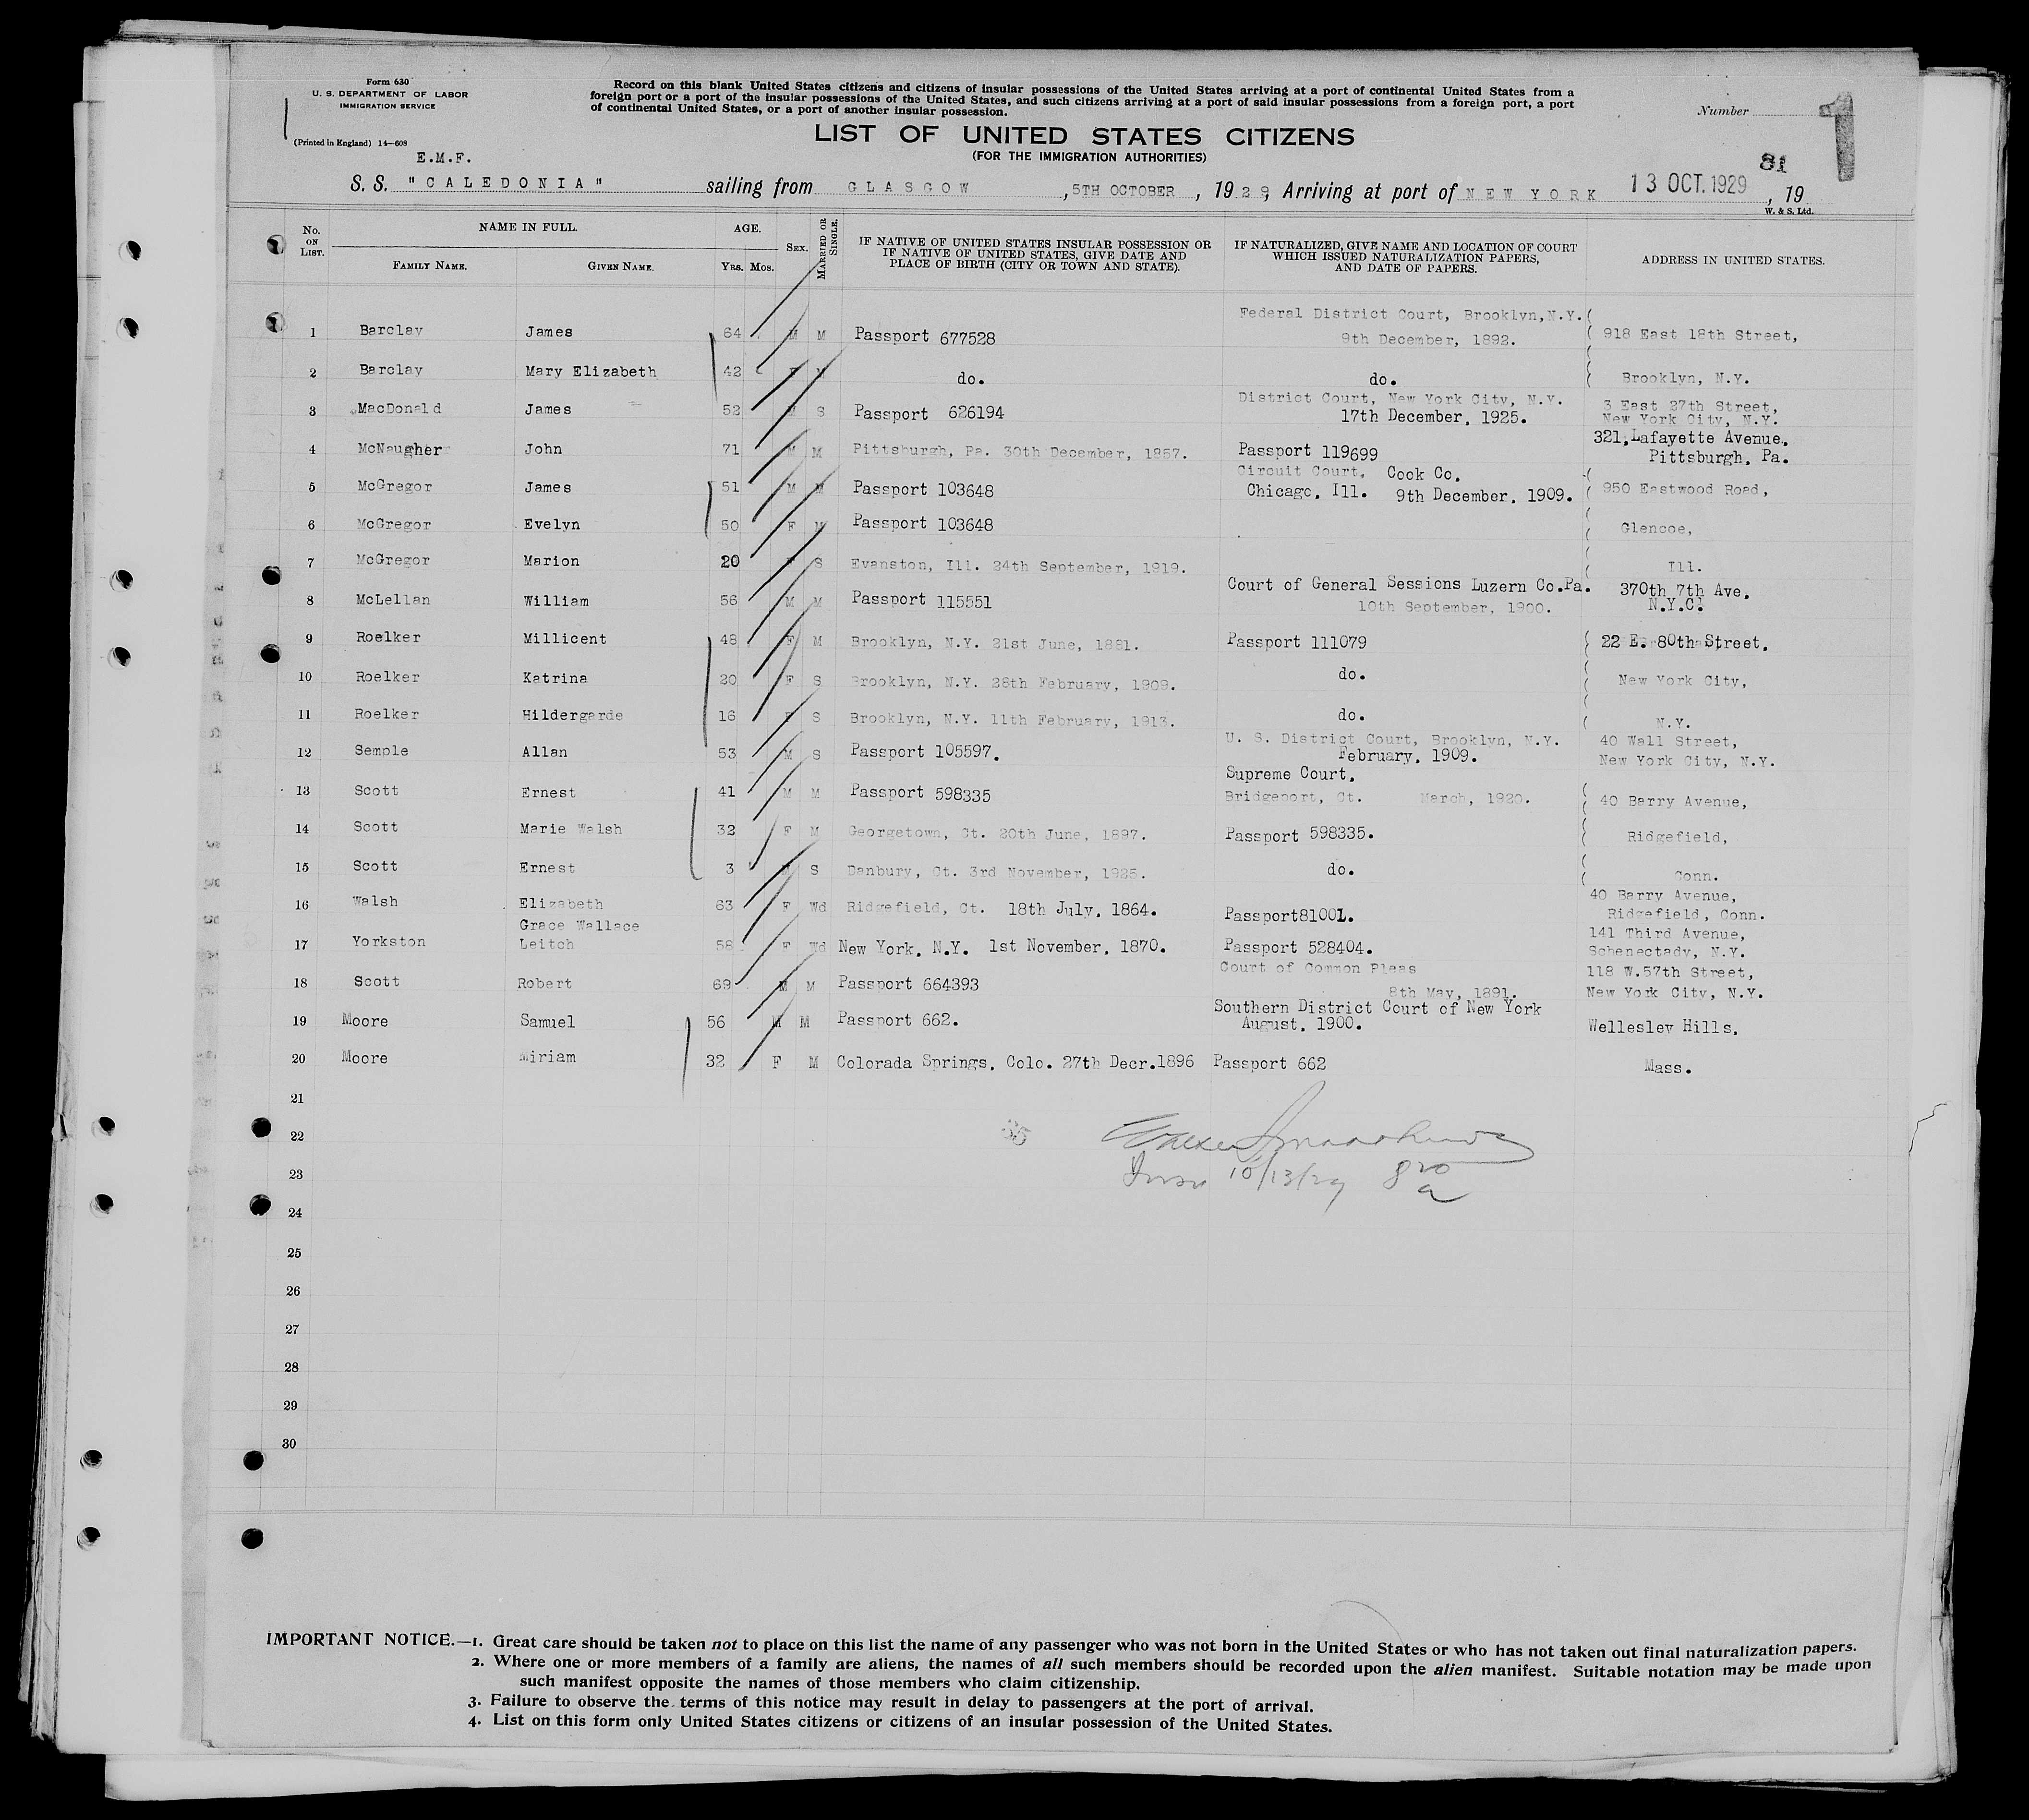 Form 630
U. S. DEPARTMENT OF LABOR
IMMIGRATION SERVICE
(Printed in England) 14—608
Record on this blank United States citizens and citizens of insular possessions of the United States arriving at a port of continental United States from a
foreign port or a port of the insular possessions of the United States, and such citizens arriving at a port of said insular possessions from a foreign port, a port
of continental United States, or a port of another insular possession.
Number
1
LIST OF UNITED STATES CITIZENS
(FOR THE IMMIGRATION AUTHORITIES)
E.M.F.
81
S. S. "CALEDONIA" sailing from GLASGOW, 5TH OCTOBER, 1929, Arriving at port of NEW YORK 13 OCT. 1929, 19
W. & S. Ltd.
No. ON LIST. NAME IN FULL. AGE. SEX. MARRIED OR SINGLE. IF NATIVE OF UNITED STATES INSULAR POSSESSION OR IF NATIVE OF UNITED STATES, GIVE DATE AND PLACE OF BIRTH (CITY OR TOWN AND STATE). IF NATURALIZED, GIVE NAME AND LOCATION OF COURT WHICH ISSUED NATURALIZATION PAPERS, AND DATE OF PAPERS. ADDRESS IN UNITED STATES.
FAMILY NAME. GIVEN NAME. YRS. MOS.
Federal District Court, Brooklyn, N.Y.
1 Barclay James 64 M M Passport 677528 9th December, 1892. 918 East 18th Street,
2 Barclay Mary Elizabeth 42 F M do. do. Brooklyn, N.Y.
District Court, New York City, N.Y.
3 MacDonald James 52 M S Passport 626194 17th December, 1925. 3 East 27th Street,
New York City, N.Y.
4 McNaugher John 71 M M Pittsburgh, Pa. 30th December, 1857. Passport 119699 321, Lafayette Avenue,
Pittsburgh, Pa.
Circuit Court, Cook Co.
5 McGregor James 51 M M Passport 103648 Chicago, Ill. 9th December, 1909. 950 Eastwood Road,
6 McGregor Evelyn 50 F M Passport 103648 Glencoe,
7 McGregor Marion 20 F S Evanston, Ill. 24th September, 1919. Ill.
Court of General Sessions Luzern Co.Pa.
8 McLellan William 56 M M Passport 115551 10th September, 1900. 370th 7th Ave.
N.Y.C.
9 Roelker Millicent 48 F M Brooklyn, N.Y. 21st June, 1881. Passport 111079 22 E. 80th Street.
10 Roelker Katrina 20 F S Brooklyn, N.Y. 28th February, 1909. do. New York City,
11 Roelker Hildergarde 16 F S Brooklyn, N.Y. 11th February, 1913. do. N.Y.
U. S. District Court, Brooklyn, N.Y.
12 Semple Allan 53 M S Passport 105597. February, 1909. 40 Wall Street,
New York City, N.Y.
Supreme Court,
13 Scott Ernest 41 M M Passport 598335 Bridgeport, Ct. March, 1920. 40 Barry Avenue,
14 Scott Marie Walsh 32 F M Georgetown, Ct. 20th June, 1897. Passport 598335. Ridgefield,
15 Scott Ernest 3 M S Danbury, Ct. 3rd November, 1925. do. Conn.
16 Walsh Elizabeth 63 F Wd Ridgefield, Ct. 18th July, 1864. Passport8100L. 40 Barry Avenue,
Ridgefield, Conn.
Grace Wallace
17 Yorkston Leitch 58 F Wd New York, N.Y. 1st November, 1870. Passport 528404. 141 Third Avenue,
Schenectady, N.Y.
Court of Common Pleas
18 Scott Robert 69 M M Passport 664393 8th May, 1891. 118 W.57th Street,
New York City, N.Y.
Southern District Court of New York
19 Moore Samuel 56 M M Passport 662. August, 1900. Wellesley Hills,
20 Moore Miriam 32 F M Colorada Springs, Colo. 27th Decr.1896 Passport 662 Mass.
21
22
23 10/13/29 8 20 a
24
25
26
27
28
29
30
IMPORTANT NOTICE.—1. Great care should be taken not to place on this list the name of any passenger who was not born in the United States or who has not taken out final naturalization papers.
2. Where one or more members of a family are aliens, the names of all such members should be recorded upon the alien manifest. Suitable notation may be made upon
such manifest opposite the names of those members who claim citizenship.
3. Failure to observe the terms of this notice may result in delay to passengers at the port of arrival.
4. List on this form only United States citizens or citizens of an insular possession of the United States.